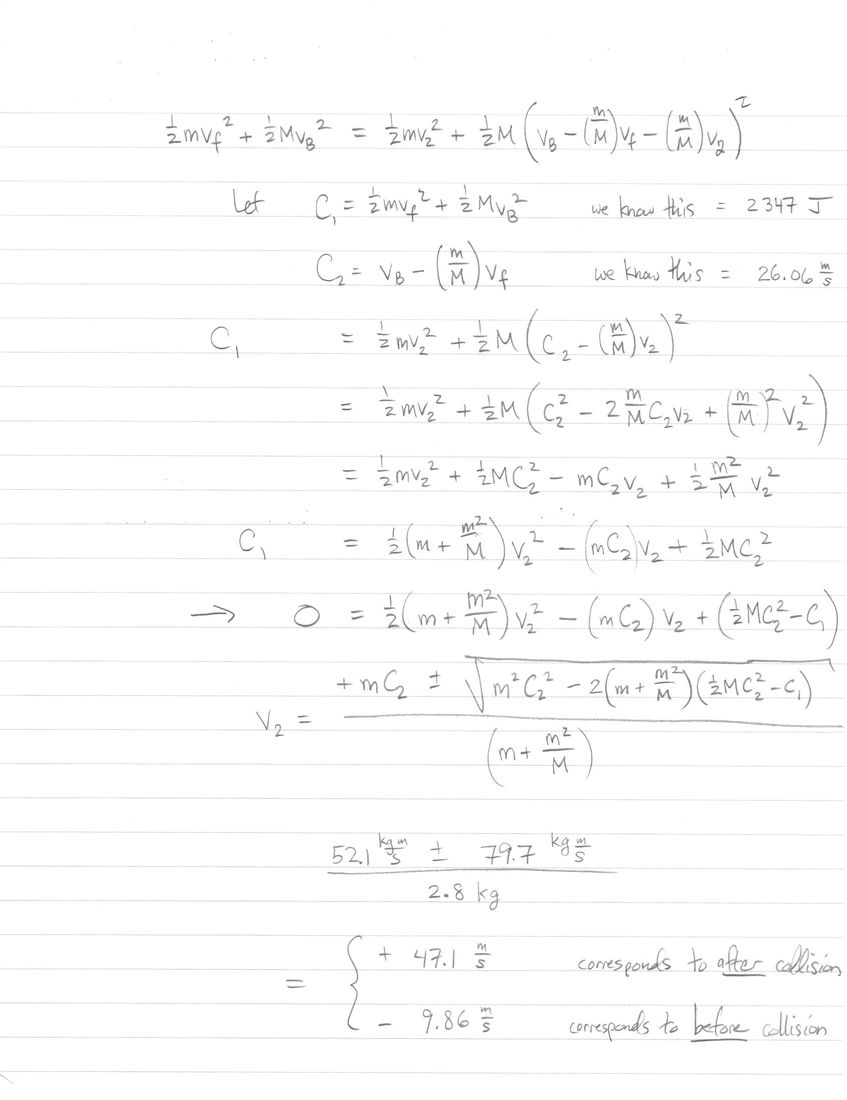 ½mv_f² + ½Mv_B² = ½mv₂² + ½M(v_B − (m/M)v_f − (m/M)v₂)²
Let C₁ = ½mv_f² + ½Mv_B² we know this = 2347 J
C₂ = v_B − (m/M)v_f we know this = 26.06 m/s
C₁ = ½mv₂² + ½M(C₂ − (m/M)v₂)²
= ½mv₂² + ½M(C₂² − 2 m/M C₂v₂ + (m/M)² v₂²)
= ½mv₂² + ½MC₂² − mC₂v₂ + ½ m²/M v₂²
C₁ = ½(m + m²/M)v₂² − (mC₂)v₂ + ½MC₂²
→ 0 = ½(m + m²/M)v₂² − (mC₂)v₂ + (½MC₂² − C₁)
v₂ = (+mC₂ ± √(m²C₂² − 2(m + m²/M)(½MC₂² − C₁))) / (m + m²/M)
52.1 kg m/s ± 79.7 kg m/s
2.8 kg
= { + 47.1 m/s corresponds to after collision
− 9.86 m/s corresponds to before collision